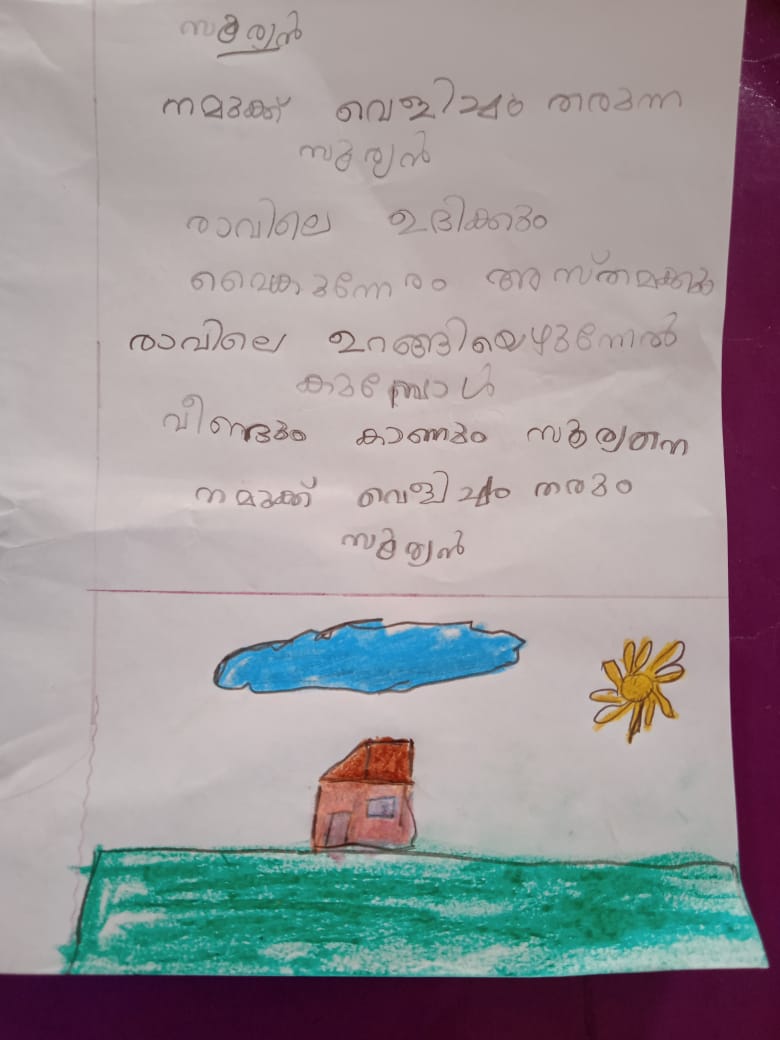 സൂര്യൻ
നമുക്ക് വെളിച്ചം തരുന്ന
സൂര്യൻ
രാവിലെ ഉദിക്കും
വൈകുന്നേരം അസ്തമക്കും
രാവിലെ ഉറങ്ങിയെഴുന്നേൽ
കുമ്പോൾ
വീണ്ടും കാണും സൂര്യനെ
നമുക്ക് വെളിച്ചം തരും
സൂര്യൻ